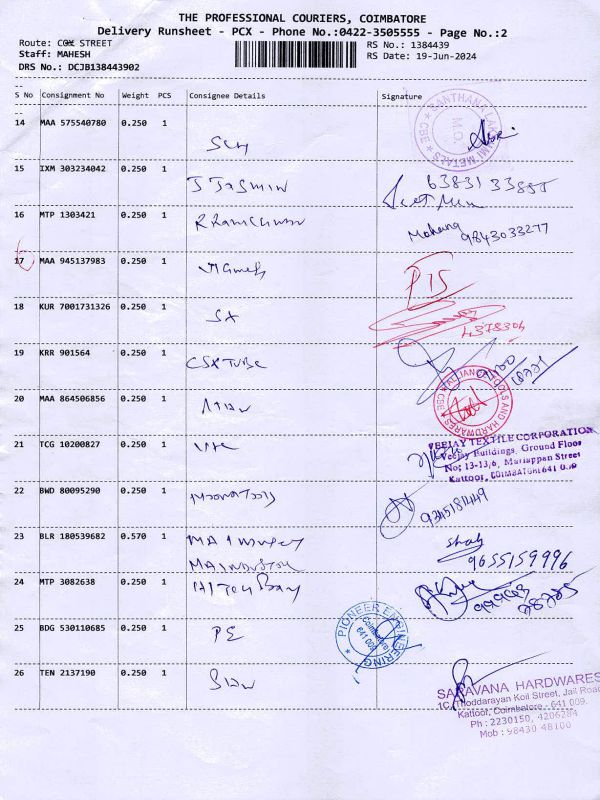 THE PROFESSIONAL COURIERS, COIMBATORE
Delivery Runsheet - PCX - Phone No.:0422-3505555 - Page No.:2
Route: COX STREET
Staff: MAHESH
DRS No.: DCJB138443902
RS No.: 1384439
RS Date: 19-Jun-2024
S No Consignment No Weight PCS Consignee Details Signature
14 MAA 575540780 0.250 1
SANTHANA LAKSHMI METALS M.O. CBE
15 IXM 303234042 0.250 1
J JASMIN 63831 33855
16 MTP 1303421 0.250 1
Mohana 9843033277
17 MAA 945137983 0.250 1
18 KUR 7001731326 0.250 1
SX
19 KRR 901564 0.250 1
CSX TUBE
20 MAA 864506856 0.250 1
ALLIANCE TOOLS AND HARDWARES CBE
21 TCG 10200827 0.250 1
VEEJAY TEXTILE CORPORATION
Veejay Buildings, Ground Floor
No; 13-13/6, Mariappan Street
Kattoor, COIMBATORE 641 009
22 BWD 80095290 0.250 1
9345181449
23 BLR 180539682 0.570 1
9655159996
24 MTP 3082638 0.250 1
25 BDG 530110685 0.250 1
PE
PIONEER ENGINEERING Coimbatore 641 009
26 TEN 2137190 0.250 1
SARAVANA HARDWARES
1C, Thoddarayan Koil Street, Jail Road
Kattoor, Coimbatore - 641 009.
Ph : 2230150, 4206284
Mob : 98430 48100